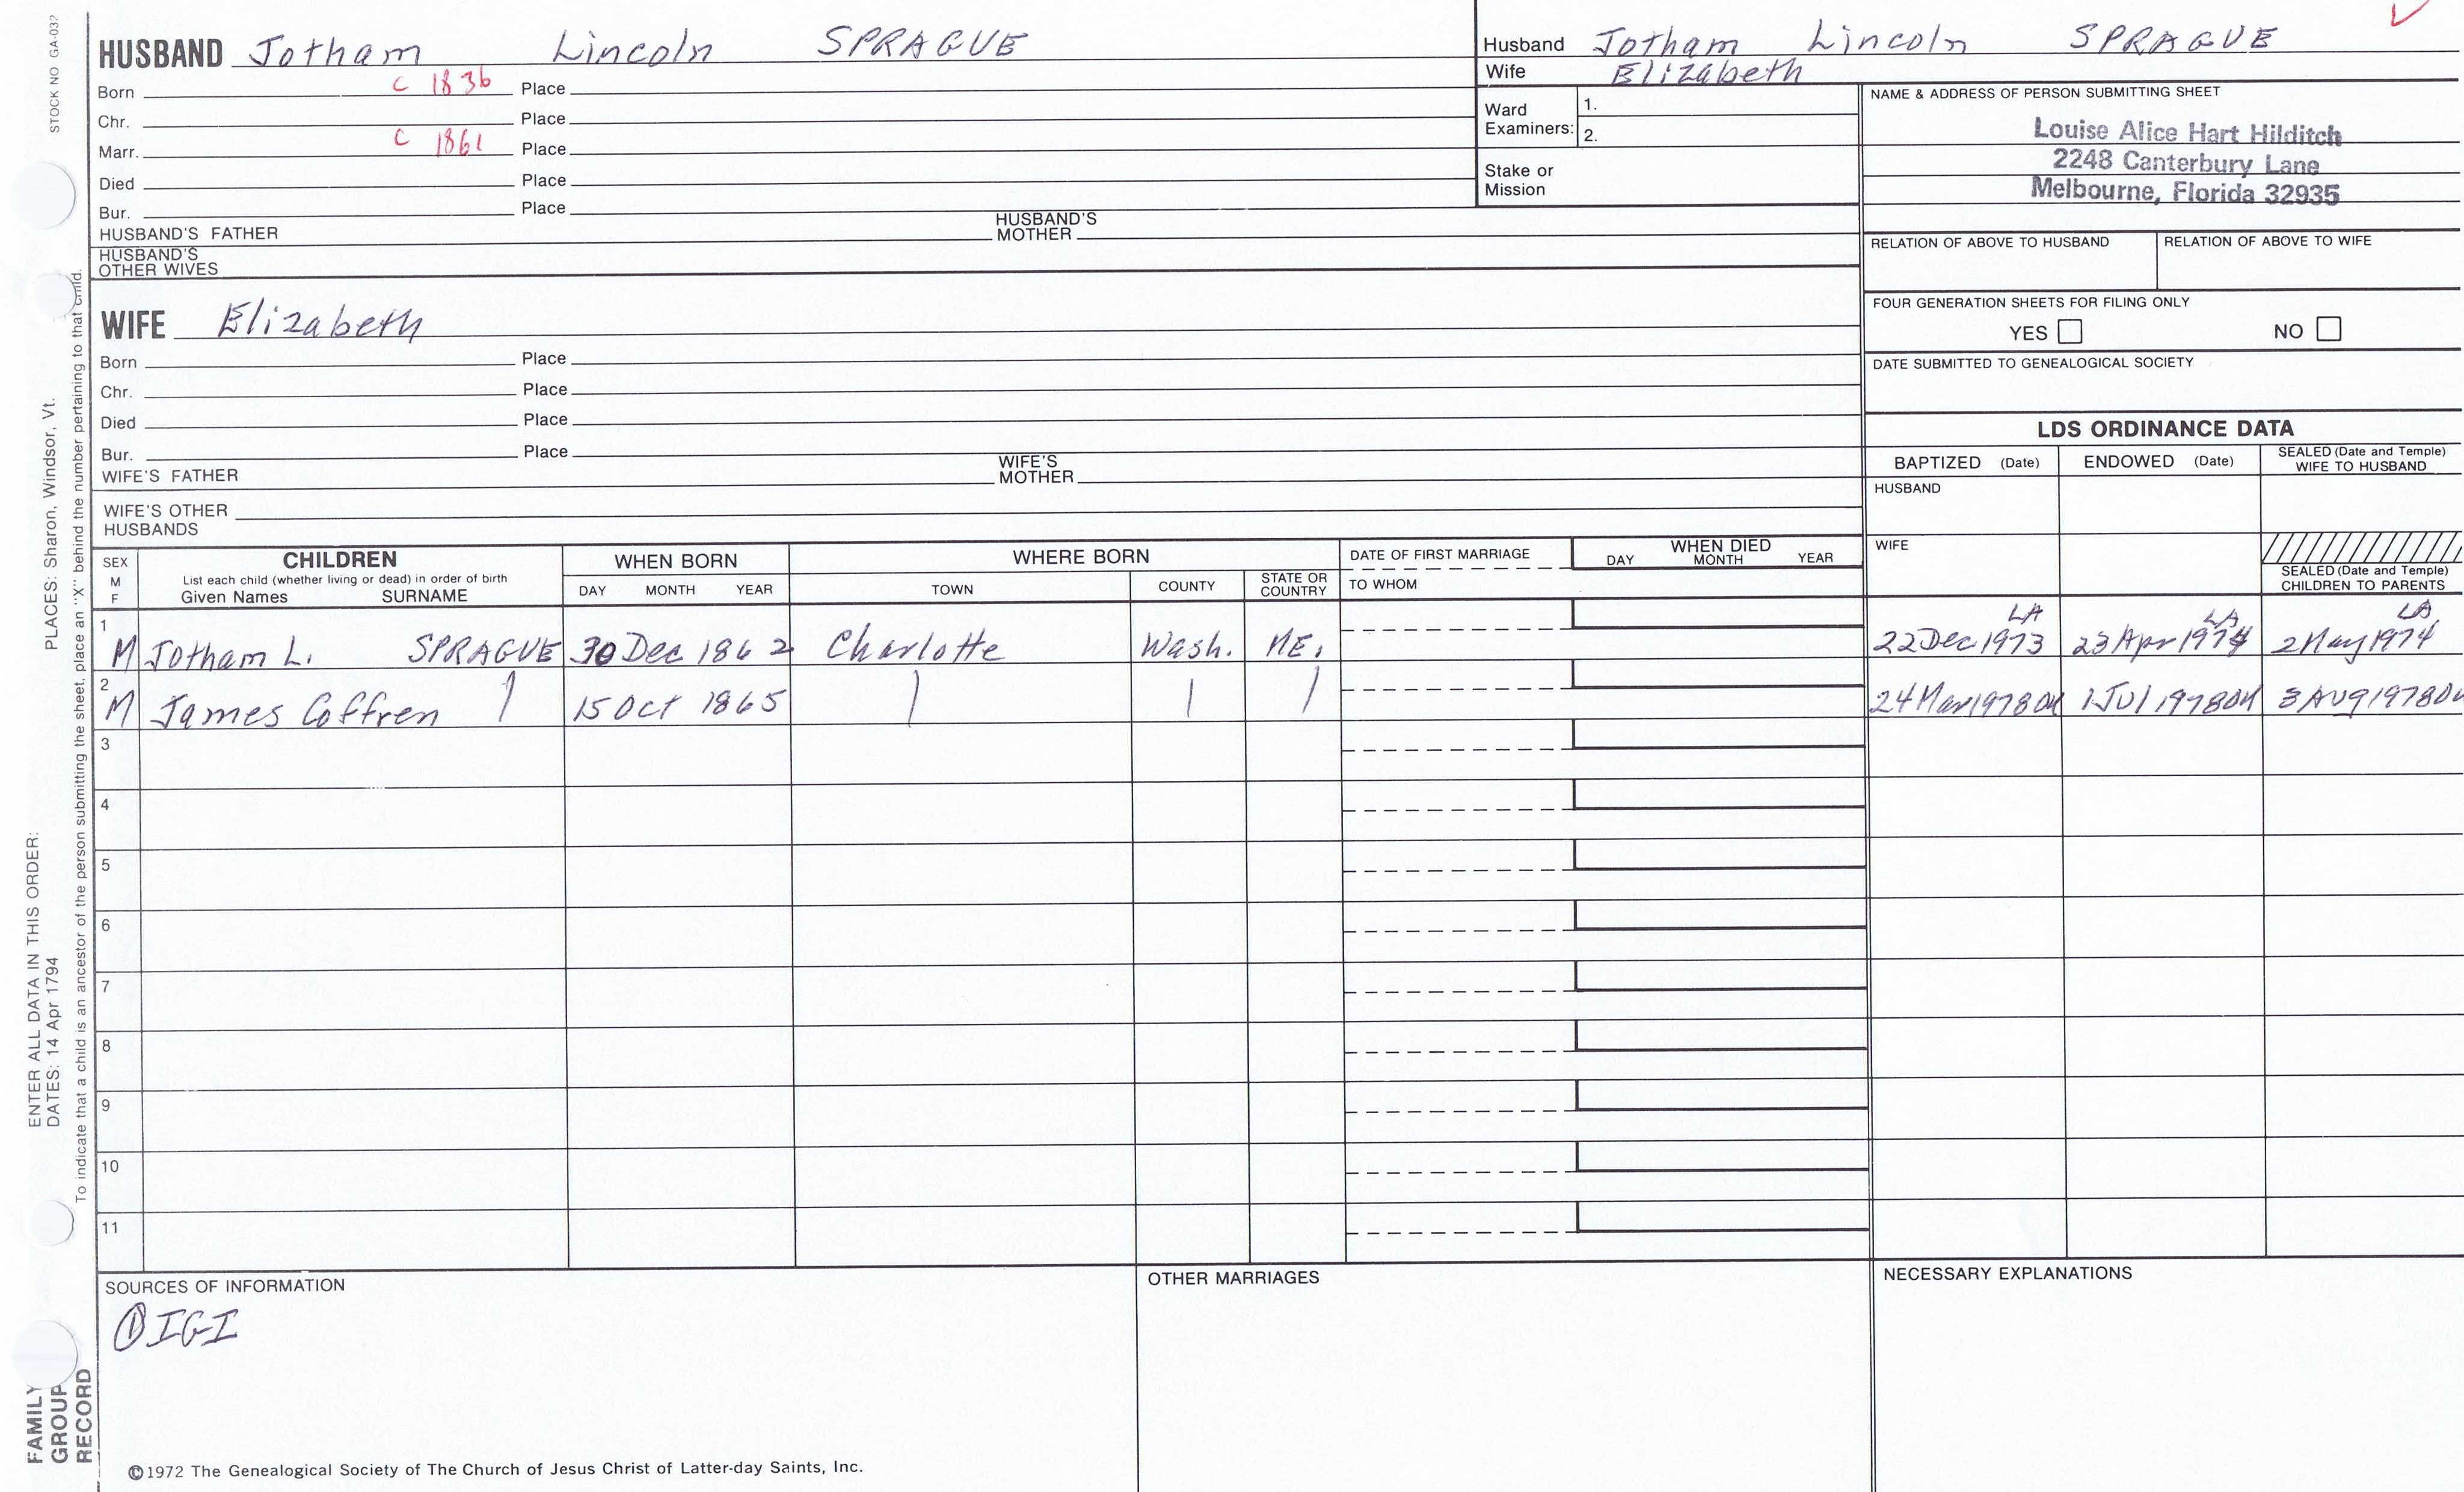 STOCK NO GA-032
HUSBAND Jotham Lincoln SPRAGUE
Born c 1836 Place
Chr. Place
Marr. c 1861 Place
Died Place
Bur. Place
HUSBAND'S FATHER HUSBAND'S MOTHER
HUSBAND'S OTHER WIVES
WIFE Elizabeth
Born Place
Chr. Place
Died Place
Bur. Place
WIFE'S FATHER WIFE'S MOTHER
WIFE'S OTHER HUSBANDS
Husband Jotham Lincoln SPRAGUE
Wife Elizabeth
Ward Examiners: 1.
2.
Stake or Mission
NAME & ADDRESS OF PERSON SUBMITTING SHEET
Louise Alice Hart Hilditch
2248 Canterbury Lane
Melbourne, Florida 32935
RELATION OF ABOVE TO HUSBAND RELATION OF ABOVE TO WIFE
FOUR GENERATION SHEETS FOR FILING ONLY
YES NO
DATE SUBMITTED TO GENEALOGICAL SOCIETY
LDS ORDINANCE DATA
BAPTIZED (Date) ENDOWED (Date) SEALED (Date and Temple) WIFE TO HUSBAND
HUSBAND
WIFE
SEALED (Date and Temple) CHILDREN TO PARENTS
SEX M F CHILDREN WHEN BORN WHERE BORN DATE OF FIRST MARRIAGE WHEN DIED
List each child (whether living or dead) in order of birth
Given Names SURNAME DAY MONTH YEAR TOWN COUNTY STATE OR COUNTRY TO WHOM DAY MONTH YEAR
LA LA LA
1 M Jotham L. SPRAGUE 30 Dec 1862 Charlotte Wash. ME. 22 Dec 1973 23 Apr 1974 2 May 1974
2 M James Coffren 15 Oct 1865 24 Mar 1978 1 Jul 1978 3 AUg 1978
3
4
5
6
7
8
9
10
11
SOURCES OF INFORMATION OTHER MARRIAGES NECESSARY EXPLANATIONS
① IGI
©1972 The Genealogical Society of The Church of Jesus Christ of Latter-day Saints, Inc.
ENTER ALL DATA IN THIS ORDER:
DATES: 14 Apr 1794 PLACES: Sharon, Windsor, Vt.
To indicate that a child is an ancestor of the person submitting the sheet, place an "X" behind the number pertaining to that child.
FAMILY
GROUP
RECORD